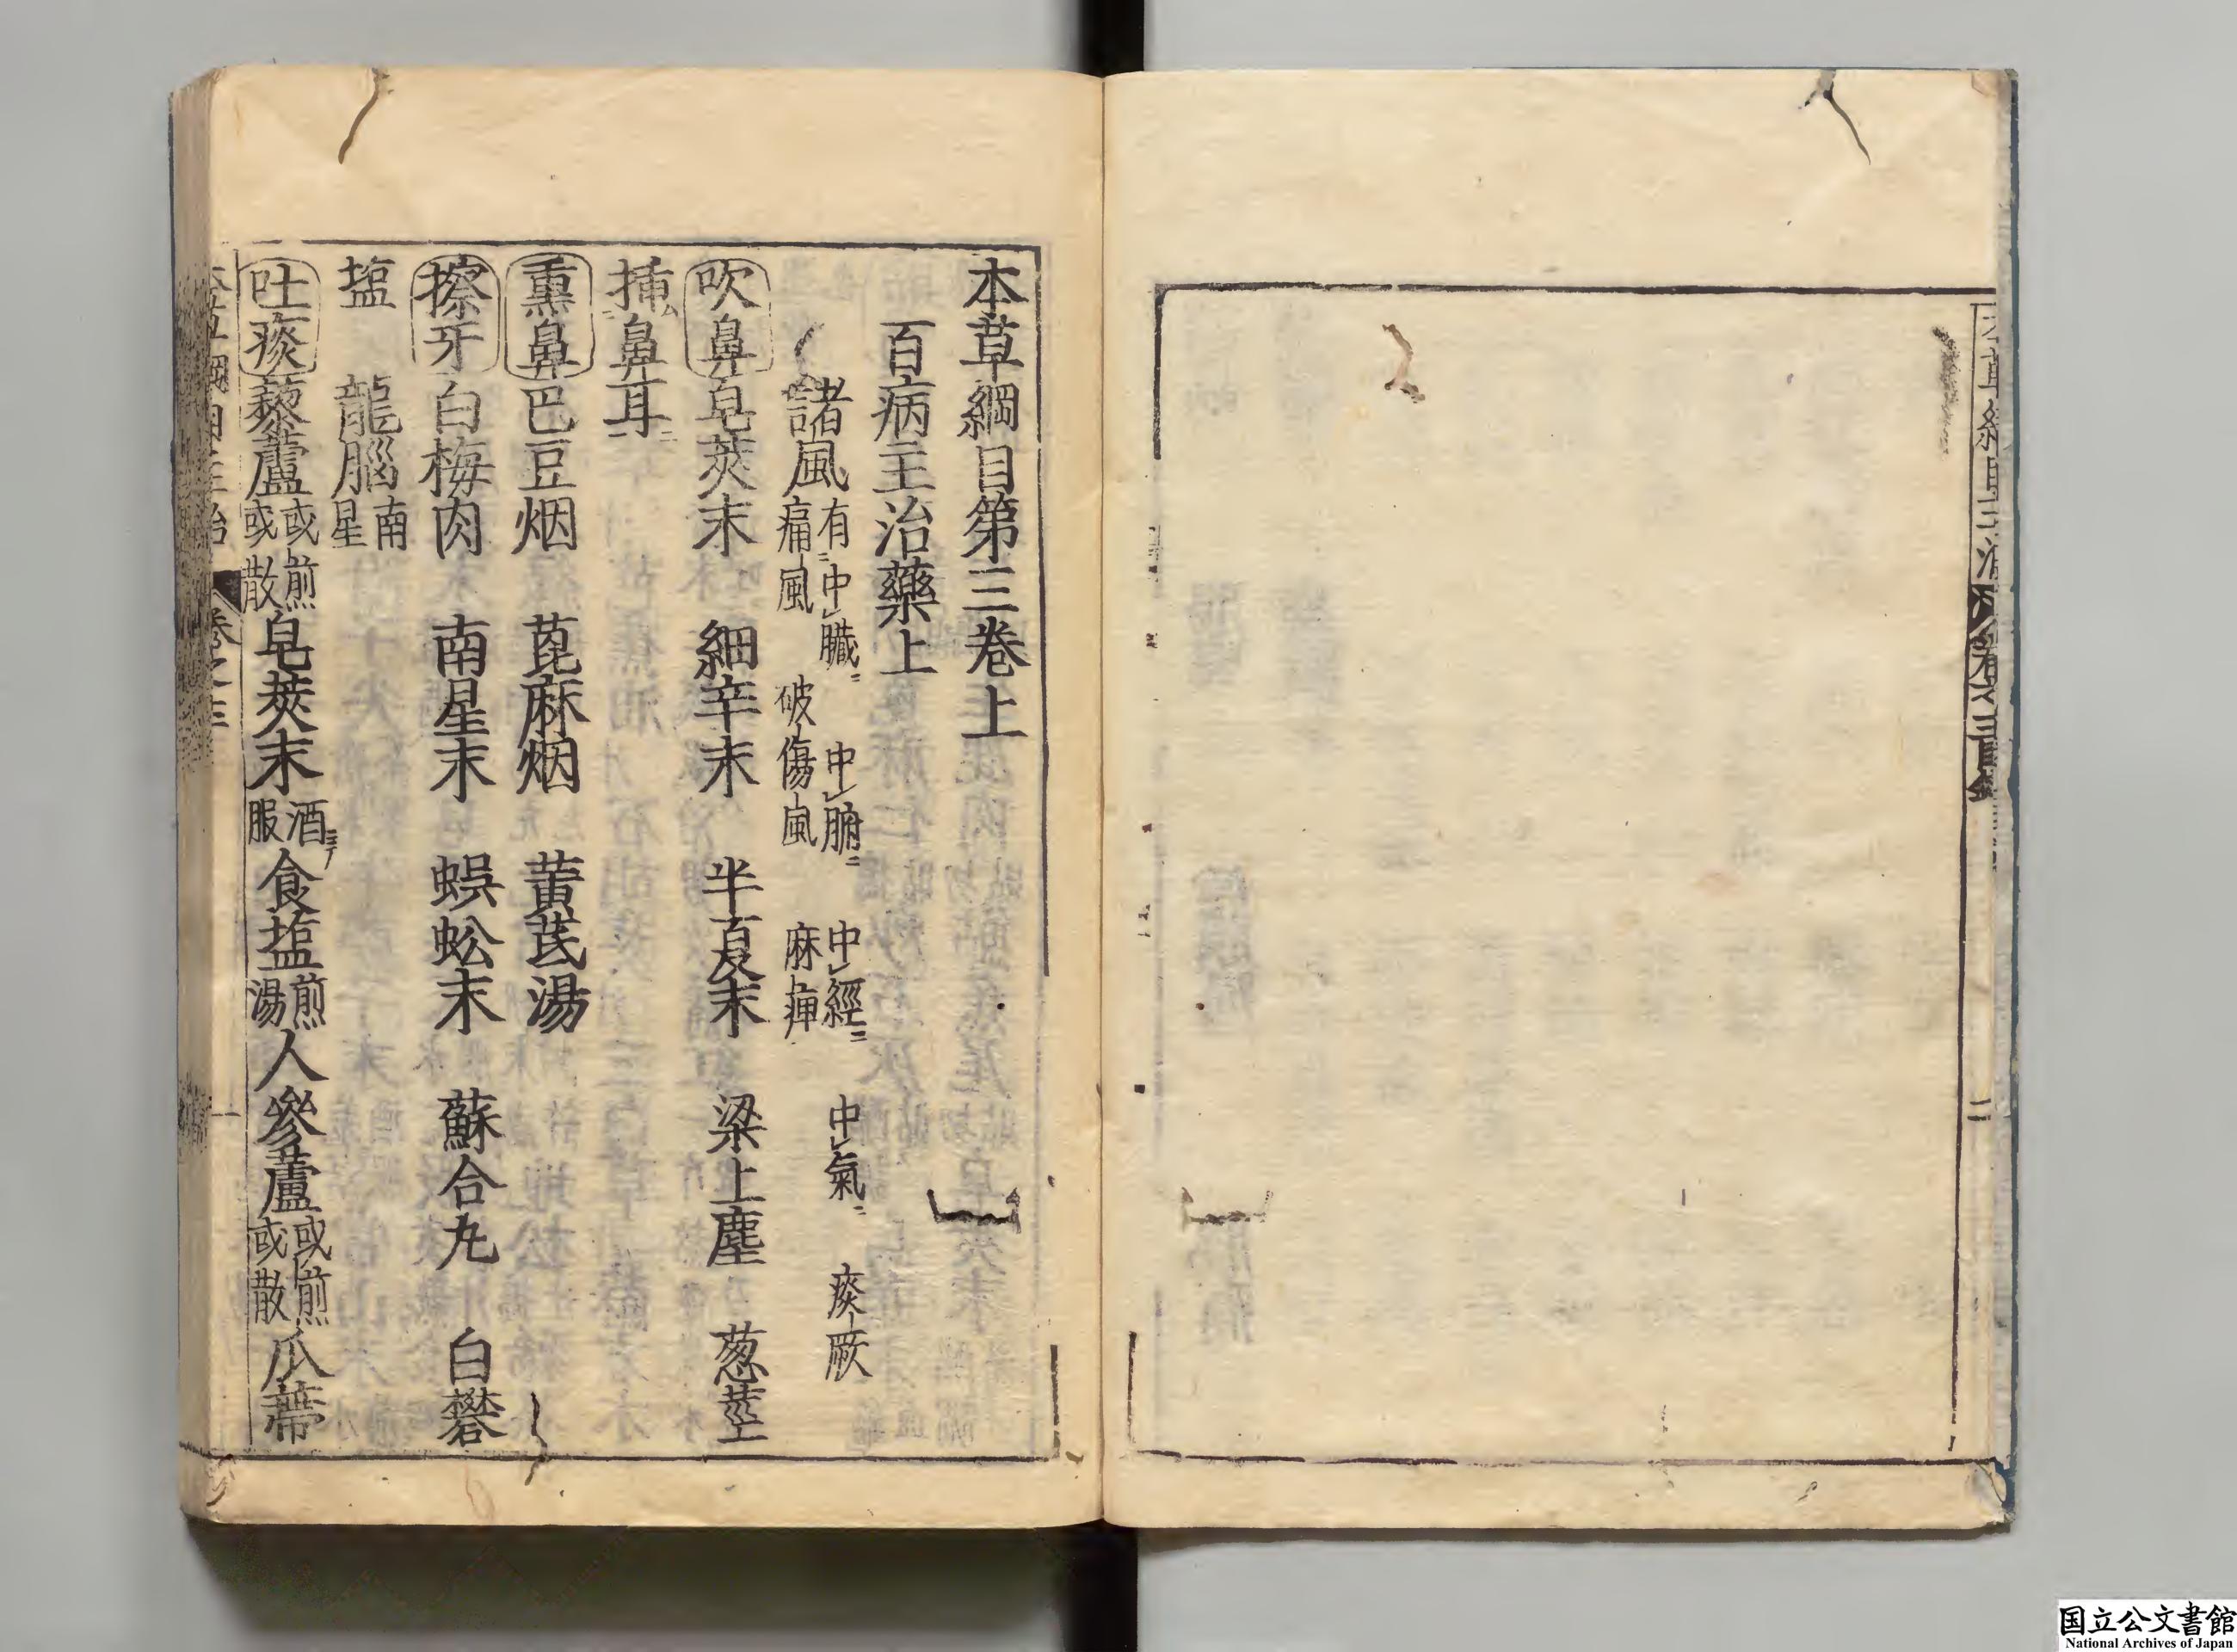 本草綱目第三卷上
百病主治藥上
諸風有中臟 中腑 中經 中氣 痰厥
痛風 破傷風 麻痺
吹鼻皂莢末 細辛末 半夏末 梁上塵 葱莖
挿鼻耳
熏鼻巴豆烟 萞麻烟 黃芪湯
擦牙白梅肉 南星末 蜈蚣末 蘇合丸 白礬
塩 龍腦南星
吐痰藜蘆或煎或散皂莢末酒服食塩煎湯人參蘆或煎或散瓜蒂
卷之三
一
二
国立公文書館
National Archives of Japan